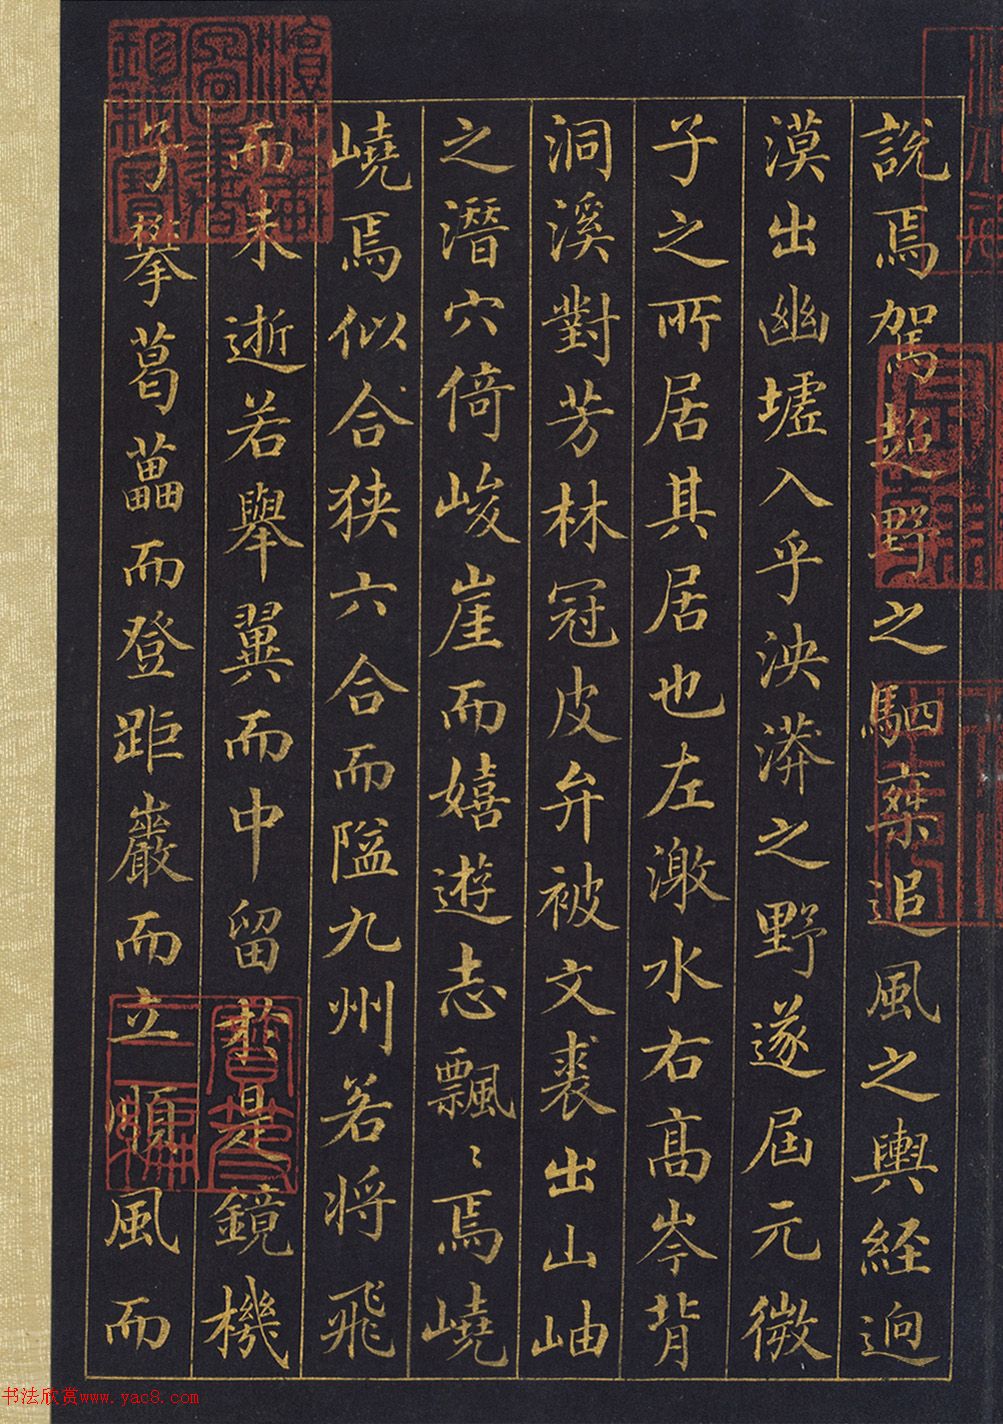 說焉駕超野之駟椉追風之輿經迥
漠出幽墟入乎泱漭之野遂屆元微
子之所居其居也左激水右高岑背
洞溪對芳林冠皮弁被文裘出山岫
之潛穴倚峻崖而嬉遊志飄〻焉嶢
嶢焉似合狹六合而隘九州若将飛
而未逝若舉翼而中留於是鏡機
子攀葛藟而登距巖而立順風而
书法欣赏www.yac8.com